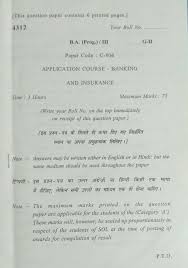 [This question paper contains 6 printed pages.]
4312 Your Roll No. ................
B.A. (Prog.) / III G-II
Paper Code : C-
APPLICATION COURSE - BANKING
AND INSURANCE
Time : 3 Hours Maximum Marks : 75
(Write your Roll No. on the top immediately
on receipt of this question paper.)
(इस प्रश्न-पत्र के मिलते ही ऊपर दिए गए निर्धारित
स्थान पर अपना अनुक्रमांक लिखिए।)
Note :- Answers may be written either in English or in Hindi; but the
same medium should be used throughout the paper.
टिप्पणी :- इस प्रश्न-पत्र का उत्तर अंग्रेज़ी या हिन्दी किसी एक भाषा
में दीजिए, लेकिन सभी उत्तरों का माध्यम एक ही होना चाहिए।
Note :- The maximum marks printed on the question
paper are applicable for the students of the (Category 'A').
These marks will, however, be scaled up proportionately in
respect of the students of SOL at the time of posting
of awards for compilation of result
P.T.O.